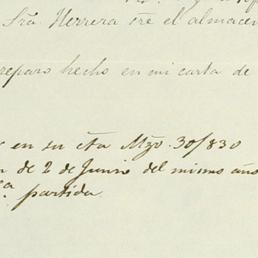 Sra Herrera tre el almacen
reparo hecho en mi carta de
en su cta Mzo. 30/830
de 2 de Junio del mismo año
partida.